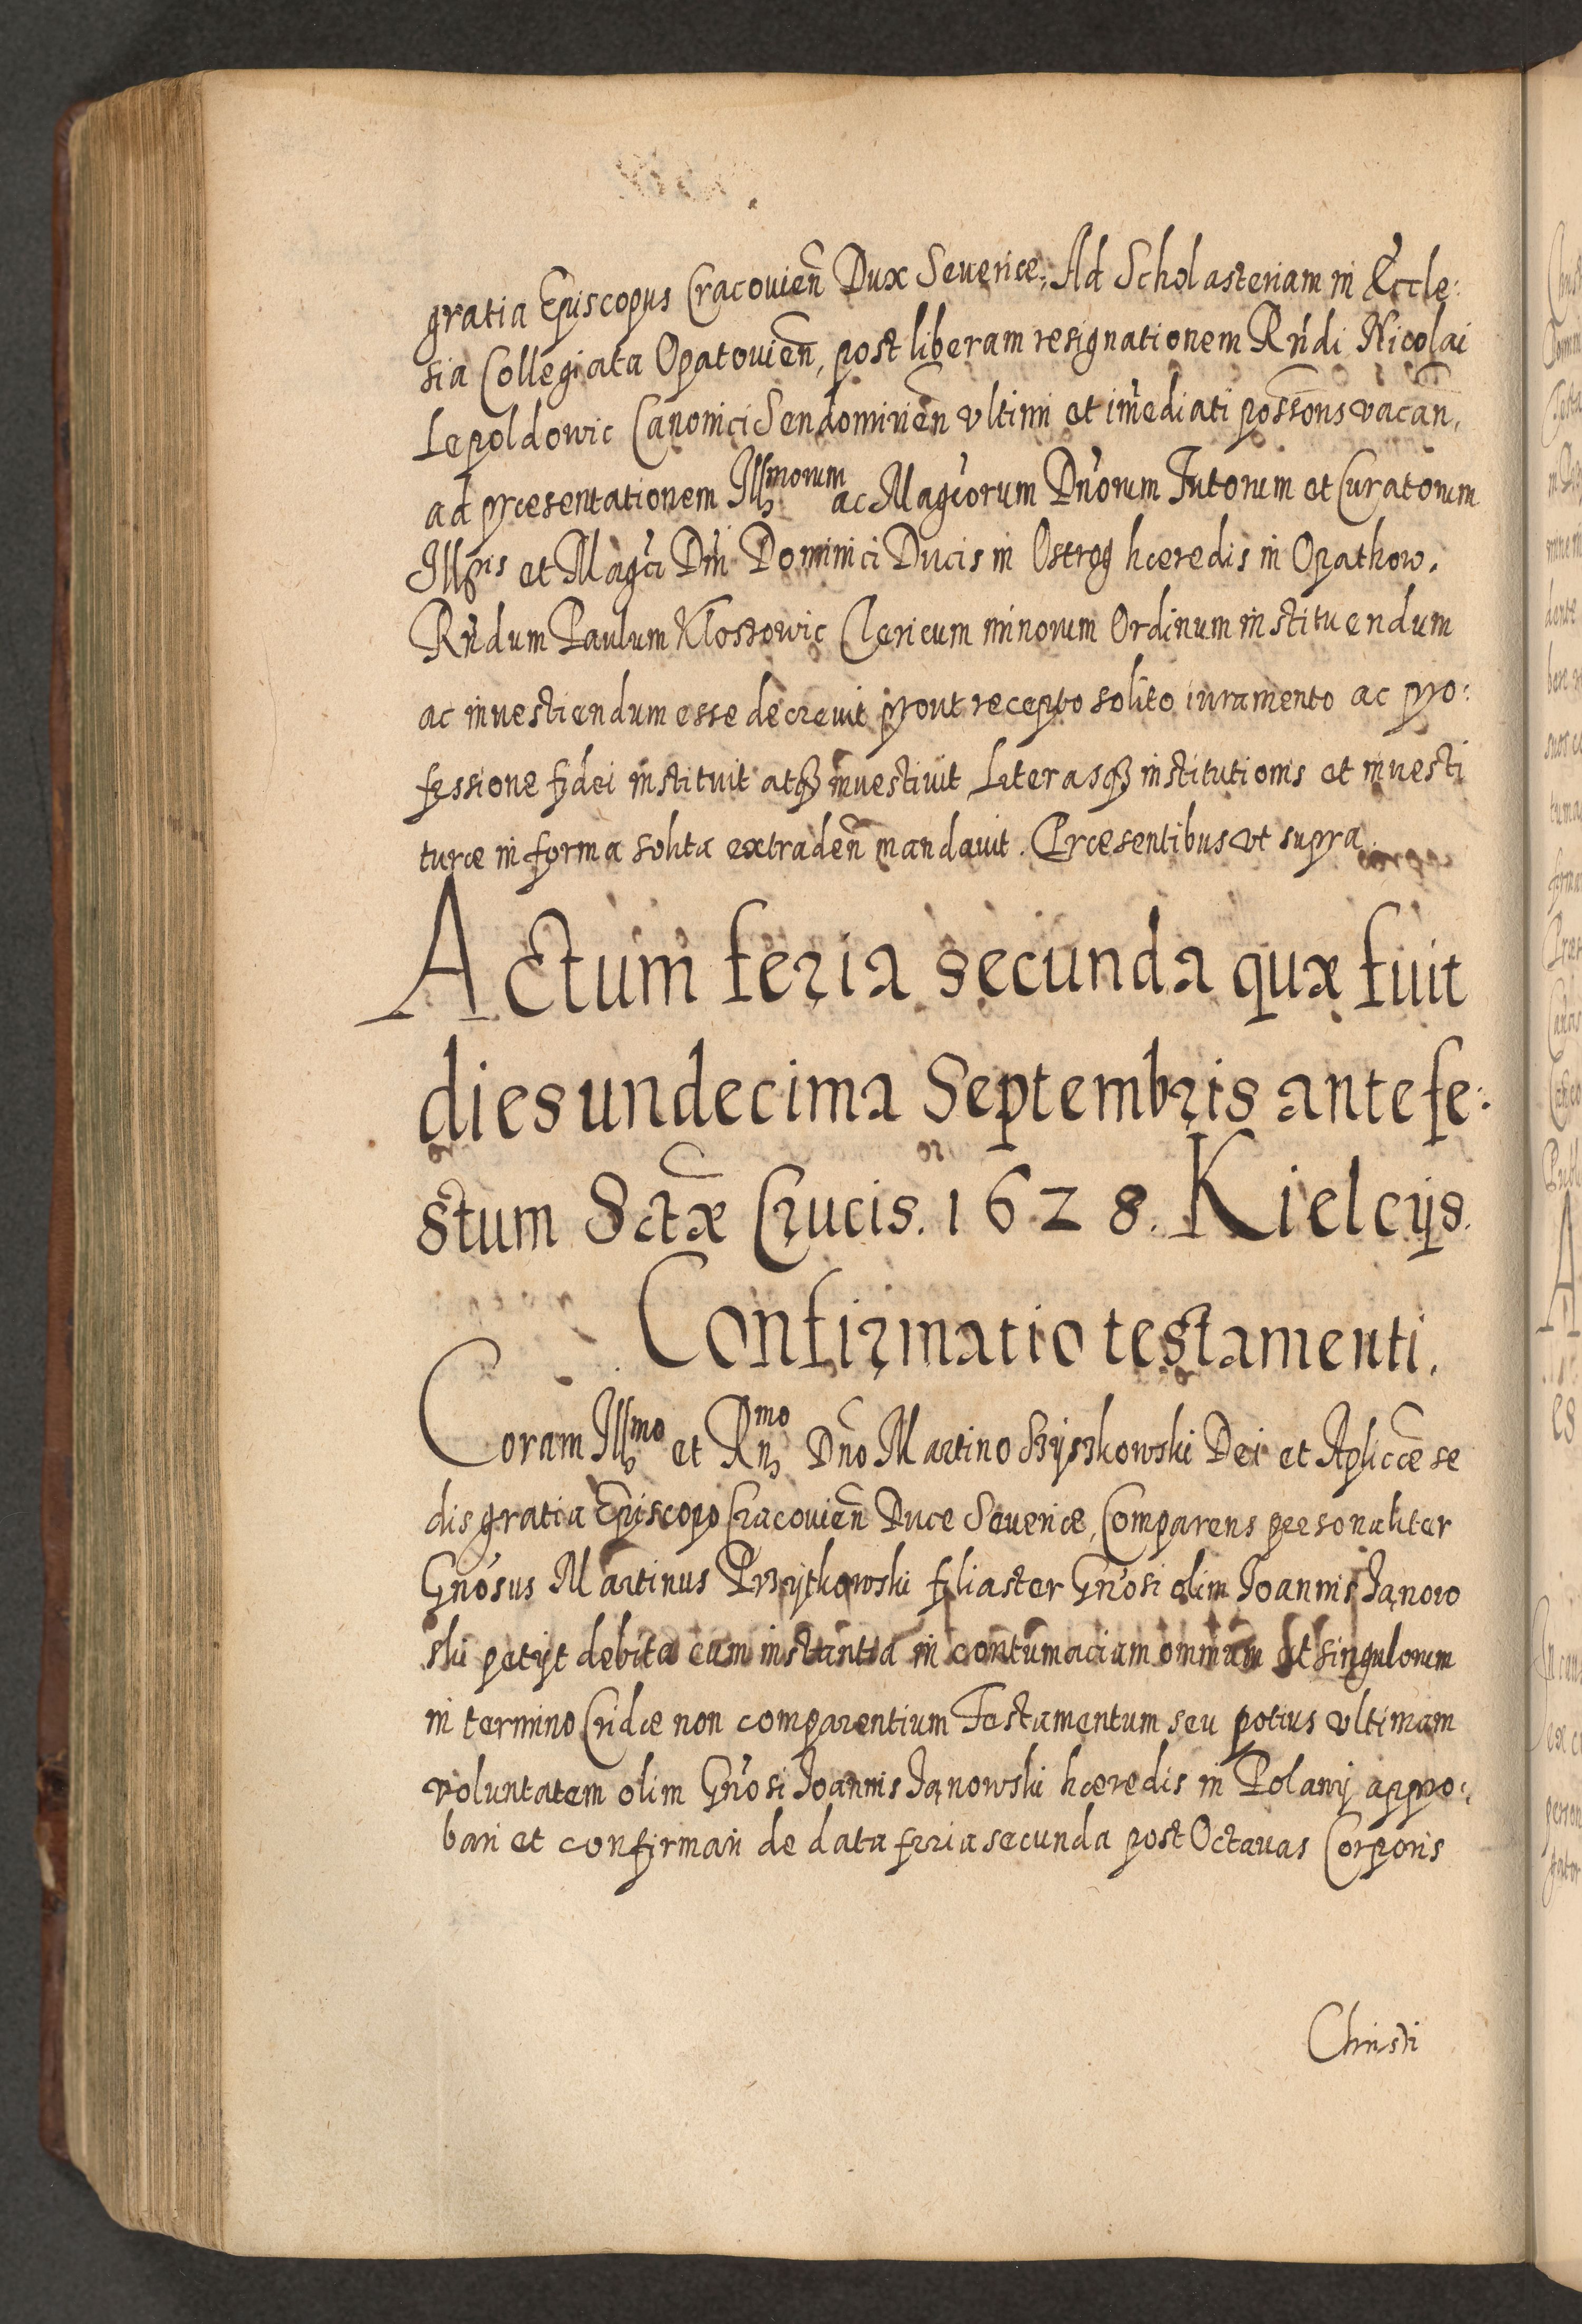 gratia Episcopus Cracovien̄ Dux Seueriæ, Ad Scholasteriam in Eccle:
sia Collegiata Opatouien̄, post liberam resignationem Rn̄di Nicolai
Lepoldowic Canonici Sendomirien̄ vltimi et im̄ediati possōns vacan̄,
ad præsentationem Illmorum ac Magc̄orum Dn̄orum Tutorum et Curatorum
Illris et Magc̄i Dn̄i Dominici Ducis in Ostrog hæredis in Opathow.
Rn̄dum Paulum Kłossowic Clericum minorum Ordinum instituendum
ac inuestiendum esse decreuit prout recepto solito iuramento ac pro:
fessione fidei instituit atqꝫ inuestiuit Literasqꝫ institutionis et inuesti
turæ in forma solita extraden̄ mandauit. Præsentibus vt supra.
Actum feria secunda quæ fuit
dies undecima Septembris ante fe:
stum Sctǣ Crucis. 1628. Kielcijs.
Confirmatio testamenti.
Coram Illmo et Rnmo Dn̄o Martino Szyszkowski Dei et Aplicǣ se
dis gratia Episcopo Cracouien̄ Duce Seueriæ, Comparens personaliter
Gn̄osus Martinus Przytkowski filiaster Gn̄osi olim Joannis Janow
ski petijt debita cum instantia in contumaciam omnium et singulorum
in termino Cridæ non comparentium Testamentum seu potius vltimam
voluntatem olim Gn̄osi Joannis Janowski hæredis in Polany appro:
bari et confirmari de data feria secunda post Octauas Corporis
Christi